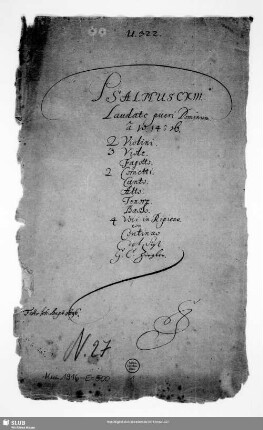 U. 522
PSALMUS CXIII
Laudate pueri Dominum
â 10. 14. 16.
2 Violini
3 Viole
Fagotto.
2 Cornetti
Canto.
Alto.
Tenor.
Basso.
4 Voci in Ripieno
con
Continuo
di
G. C.
N. 27
Mus. 1916-E-500
SLUB